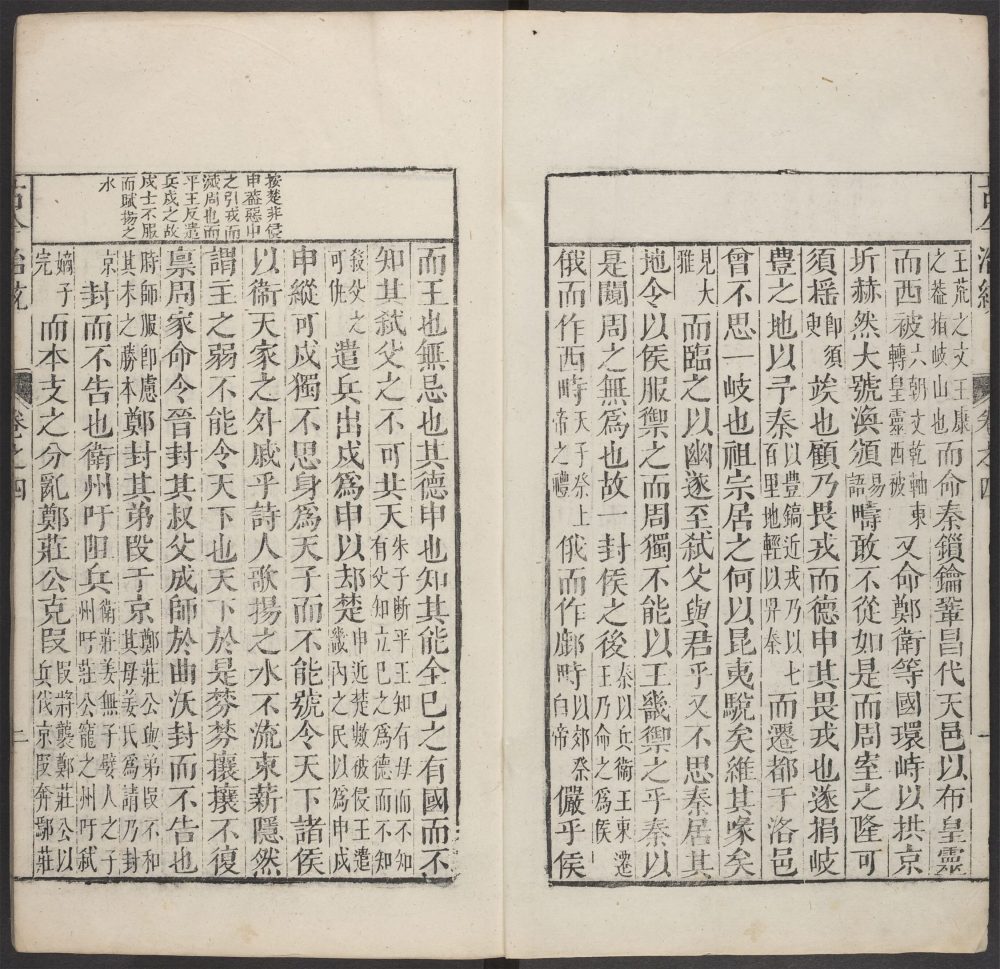 古今治統 卷之四 一
王荒之文王康
之蓋指岐山也
而命秦鎖鑰鞏昌代天邑以布皇靈
而西被
六朝文乾軸東
轉皇靈西被
又命鄭衛等國環峙以拱京
圻赫然大號渙頒
易
語
疇敢不從如是而周室之隆可
須摇
即須
臾
竢也顧乃畏戎而德申其畏戎也遂捐岐
豐之地以予秦
以豐鎬近戎乃以七
百里地輕以畀秦
而遷都于洛邑
曾不思一岐也祖宗居之何以昆夷駾矣維其喙矣
見大
雅
而臨之以幽遂至弑父與君乎又不思秦居其
地令以侯服禦之而周獨不能以王畿禦之乎秦以
是闚周之無為也故一封侯之後
秦以兵衛王東遷
王乃命之為侯
俄而作西畤
天子祭上
帝之禮
俄而作鄜畤
以郊祭
白帝
儼乎侯
按楚非侵
申蓋惡申
之引戎而
滅周也而
平王反遣
兵戍之故
戍士不服
而賦揚之
水
而王也無忌也其德申也知其能全已之有國而不
知其弑父之不可共天
朱子斷平王知有母而不知
有父知立已之為德而不知
弑父之
可仇
遣兵出戍為申以却楚
申近楚數被侵王遣
畿內之民以為申戍
申縱可戍獨不思身為天子而不能號令天下諸侯
以衛天家之外戚乎詩人歌揚之水不流束薪隱然
謂主之弱不能令天下也天下於是棼棼攘攘不復
稟周家命令晉封其叔父成師於曲沃封而不告也
時師服即慮
其末之勝本
鄭封其弟段于京
鄭莊公與弟段不和
其母姜氏為請乃封
京
封而不告也衛州吁阻兵
衛莊姜無子嬖人之子
州吁莊公寵之州吁弑
嫡子
完
而本支之分亂鄭莊公克段
段將襲鄭莊公以
兵伐京段奔鄢莊
古今治統 卷之四 二